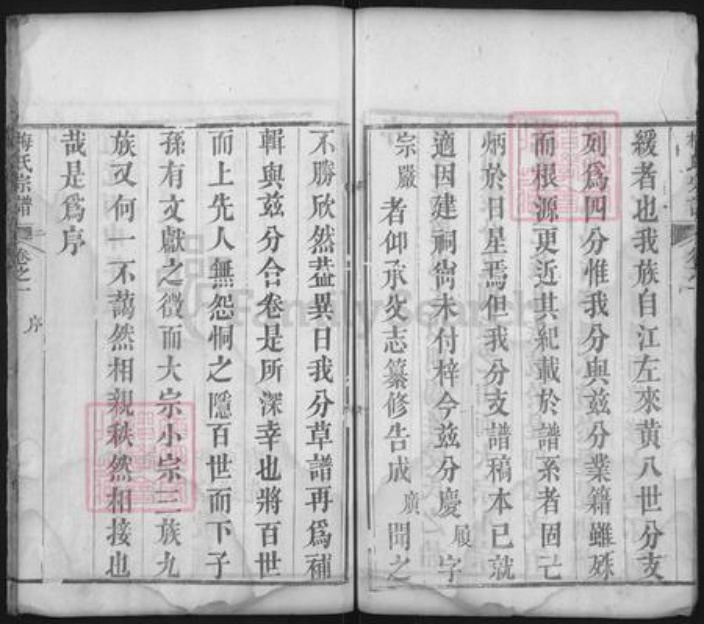 緩者也我族自江左來黃八世分支
列為四分惟我分與茲分業籍雖殊
而根源更近其紀載於譜系者固已
炳於日星焉但我分支譜稿本已就
適因建祠尚未付梓今茲分慶履字
宗嚴者仰承父志纂修告成廣聞之
不勝欣然葢異日我分草譜再為補
輯與茲分合卷是所深幸也將百世
而上先人無怨恫之隱百世而下子
孫有文獻之徵而大宗小宗三族九
族又何一不藹然相親秩然相接也
哉是為序
梅氏宗譜 卷之一 序
FamilySearch